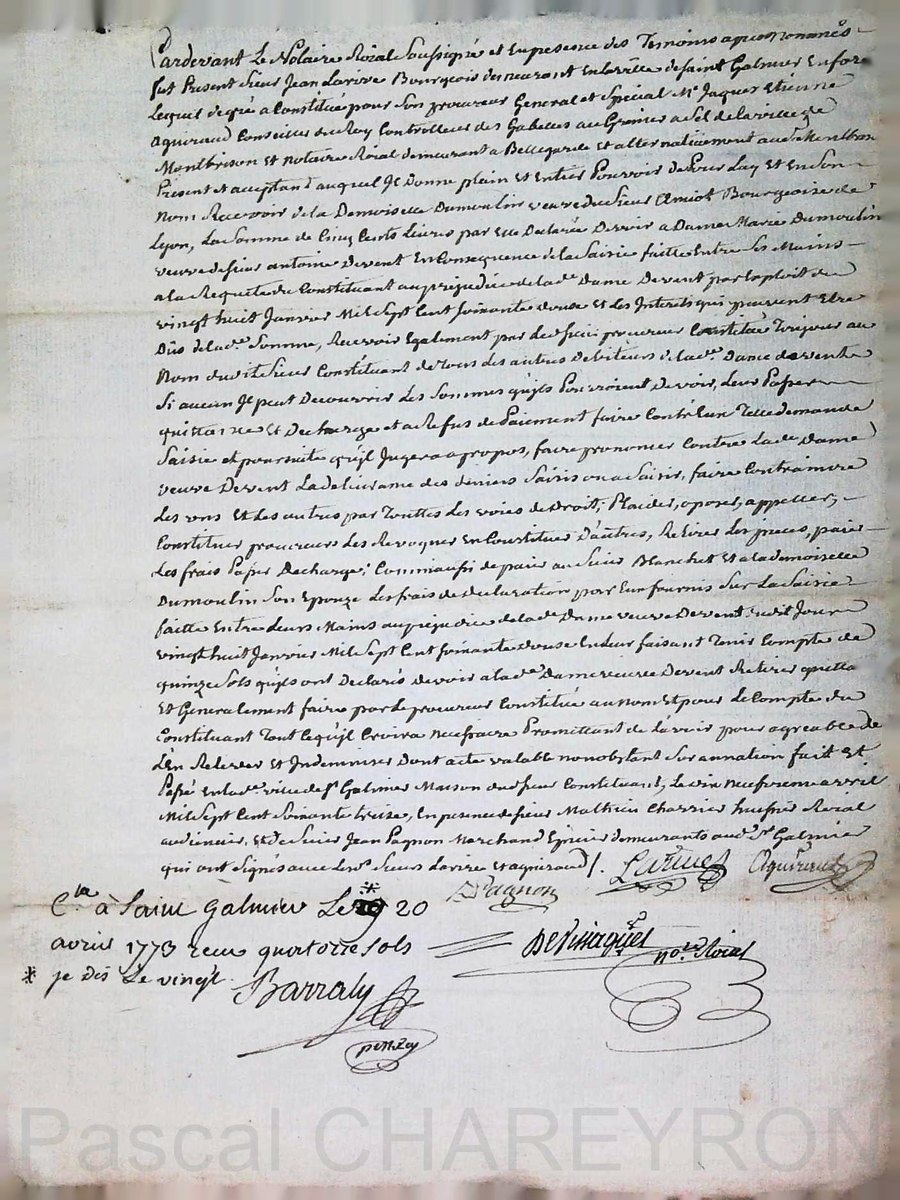 Pardevant Le Notaire Roial Soussigné et En presence des Temoins apres nommés
fut Present Sieur Jean Larive Bourgeois demeurant En La ville de Saint Galmier En forez
Lequel degré a Constitué pour Son procureur General et Special Me Jaques Etienne
Aguiraud Conseiller du Roy Controlleur des Gabelles au Grenier a Sel de la ville de
Montbrison et Notaire Roial demeurant a Bellegarde et alternativement aud. Montbrison
Present et aceptant auquel Il Donne plein et Entier Pouvoir de Pour Luy Et En Son
Nom Recevoir de la Demoiselle Dumoulin veuve du Sieur Amiot Bourgeoise de
Lyon, La Somme de Cinq Cents Livres par Elle Declarée Devoir a Dame Marie Dumoulin
veuve de Sieur antoine Devent En Consequence de la Saisie faitte Entre Ses Mains
a la Requete du Constituant au prejudice de lade Dame Devent par Exploit du
vingt huit Janvier Mil Sept Cent Soixante douse Et des Interets qui peuvent Etre
Dûs de lade Somme, Recevoir Egalement par led. Sieur procureur Constitué Toujour au
Nom dudit Sieur Constituant de Tous les autres Debiteurs de lade Dame devent
Si aucun Il peut Decouvrir les Sommes qu'ils Pourroient Devoir, Leur Passer
quittance Et Decharge et a Refus de Paiement faire Contre Eux Telle demande
Saisie et poursuite qu'il Jugera a propos, faire prononcer Contre lade Dame
veuve Devent La delivrance des deniers Saisis ou a Saisir, faire Contraindre
Les uns Et Les autres par Touttes Les voies de Droit, Plaider, oposer, appeller,
Constituer procureurs Les Revoquer En Constituer D'autres, Retirer Les pieces, paier
Les frais Passer Decharge; Comm'aussi de paier au Sieur Blanchet Et a la demoiselle
Dumoulin Son Epouze Les frais de declaration par Eux fournis Sur La Saisie
faitte Entre Leurs Mains au prejudice de lade Dame veuve Devent Ledit Jour
vingt huit Janvier Mil Sept Cent Soixante douse En Leur faisant Tenir Compte de
quinze Sols qu'ils ont Declarés devoir a lade Dame veuve Devent Retirer quitta
Et Generalement faire par le procureur Constitué au Nom Et pour Le Compte du
Constituant Tout Ce qu'il Croira Necessaire Promettant de L'avoir pour agreable de
L'En Relever Et Indemniser Dont acte valable nonobstant Surannation fait Et
Passé En lade ville de St Galmier Maison dud. Sieur Constituant, Le dix Neufvieme avril
Mil Sept Cent Soixante treise, En presence de Sieur Mathieu Charrier huissier Roial
audiencier, Et de Sieur Jean Pagnon Marchand Epicier demeurants aud. St Galmier
qui ont Signés avec Lesds Sieurs Larive et aguiraud /.
Pagnon Larive Aguiraud
C.lé à Saint Galmier Le * 20
avril 1773 reçu quatorze sols
* je dis Le vingt
Barraly
no.re Roial
Pascal CHAREYRON